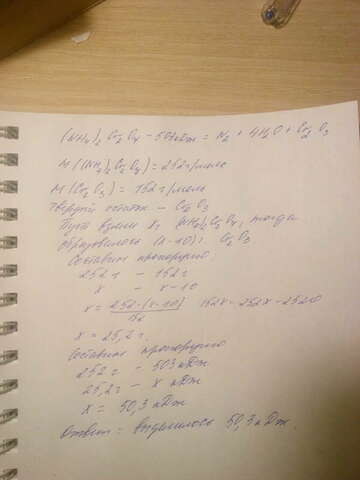 (NH4)2 Cr2 O7 - 504кДж = N2 + 4H2O + Cr2 O3
M ((NH4)2 Cr2 O7) = 252 г/моль
M (Cr2 O3) = 152 г/моль
Твердый остаток - Cr2 O3
Пусть взяли х г (NH4)2 Cr2 O7, тогда
образовалось (х-10) г Cr2 O3
Составим пропорцию:
252 г - 152 г
х - х-10
х = 252·(х-10) / 152 152х = 252х - 2520
х = 25,2 г.
Составим пропорцию
252 г - 503 кДж
25,2 г - х кДж
х = 50,3 кДж
Ответ: выделилось 50,3 кДж.